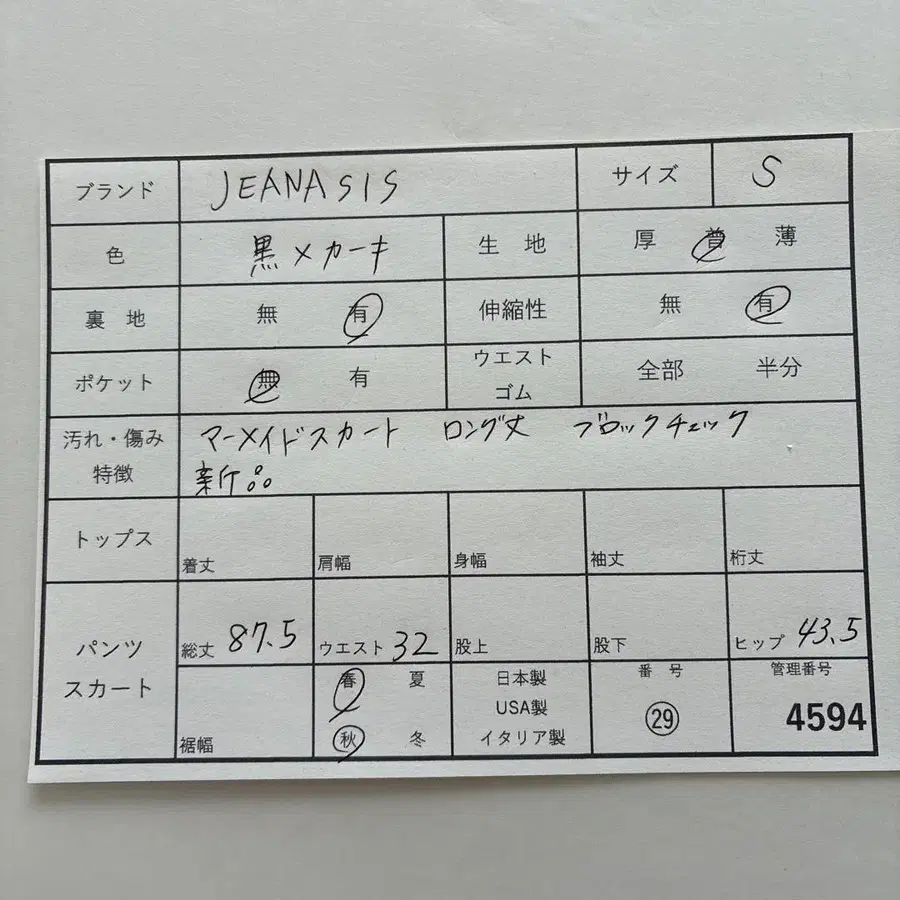 ブランド JEANASIS サイズ S
色 黒×カーキ 生地 厚 普 薄
裏地 無 有 伸縮性 無 有
ポケット 無 有 ウエストゴム 全部 半分
汚れ・傷み 特徴 マーメイドスカート ロング丈 ブロックチェック
新品
トップス 着丈 肩幅 身幅 袖丈 裄丈
パンツ スカート 総丈 87.5 ウエスト 32 股上 股下 ヒップ 43.5
裾幅 春 夏 秋 冬 日本製 USA製 イタリア製 番号 ㉙ 管理番号 4594